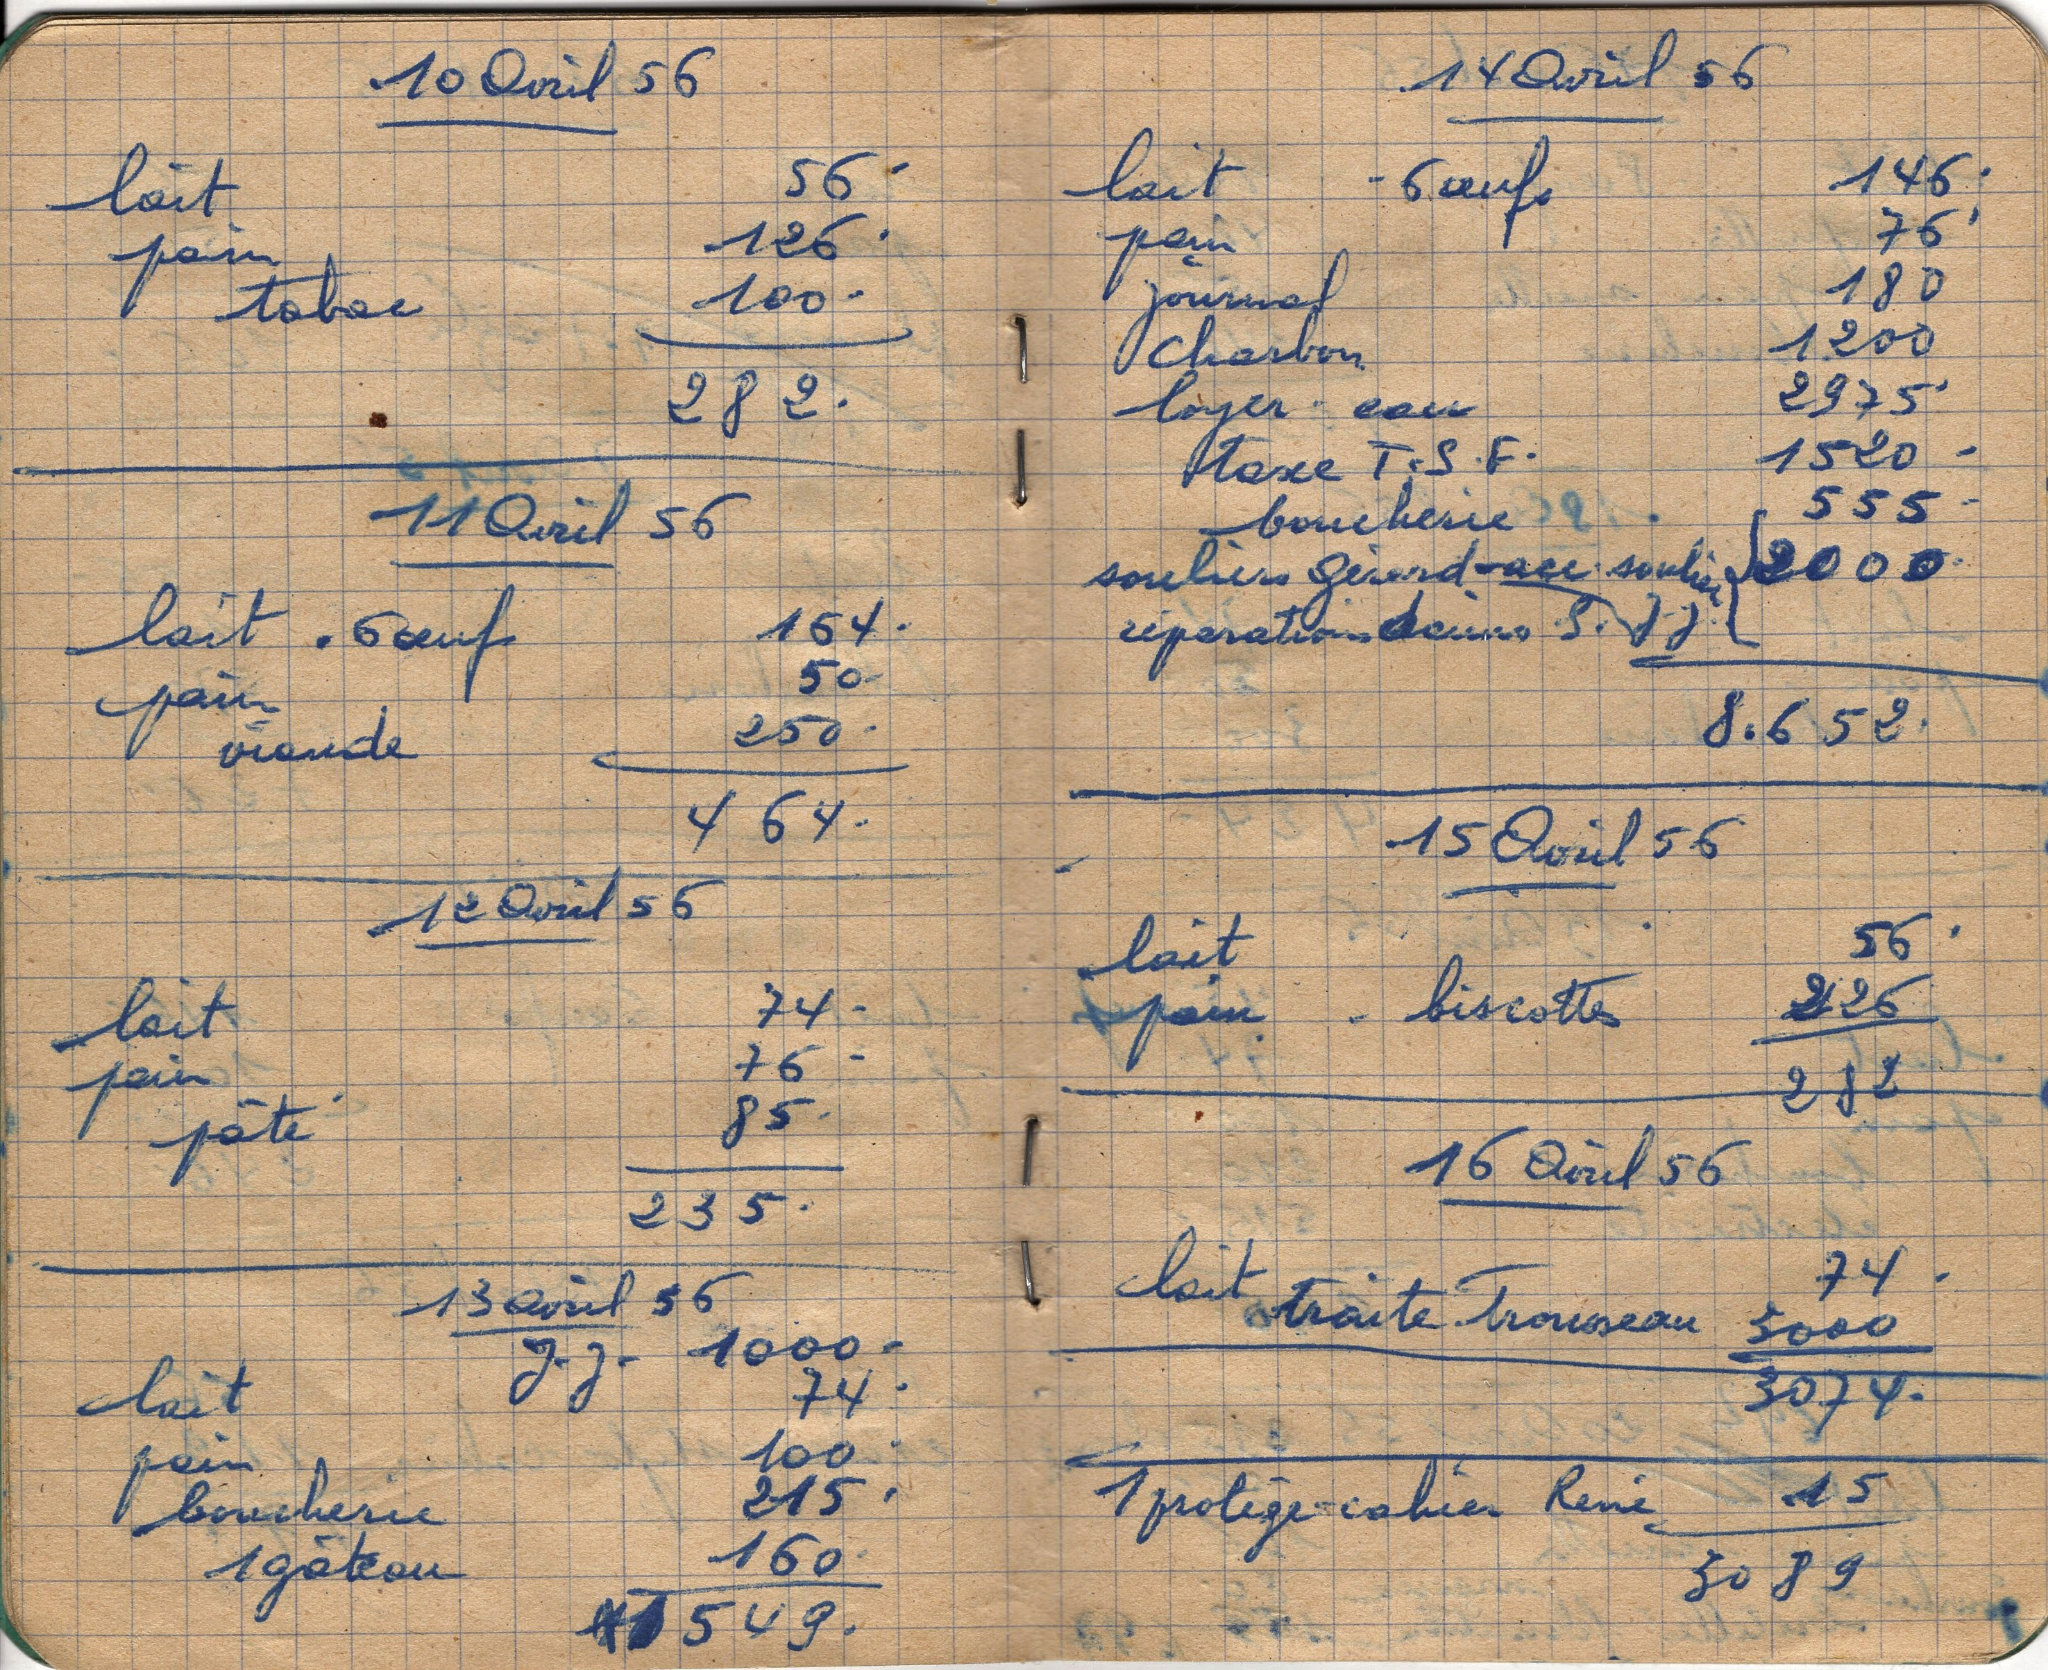 10 Avril 56
lait 56.
pain 126.
tabac 100.
282.
11 Avril 56
lait . 6 œufs 164.
pain 50.
viande 250.
464.
12 Avril 56
lait 74.
pain 76.
pâté 85.
235.
13 Avril 56
J.J. 1000.
lait 74.
pain 100
boucherie 215.
1 gâteau 160.
1549.
14 Avril 56
lait - 6 œufs 146.
pain 76.
journal 180
charbon 1200
loyer - eau 2975.
taxe T.S.F. 1520 -
boucherie 555 -
souliers Gérard - soulier 2000.
réparations J.J.
8.652.
15 Avril 56
lait 56.
pain - biscottes 226
282
16 Avril 56
lait 74.
traite Trousseau 3000
3074.
1 protège-cahier René 15
3089